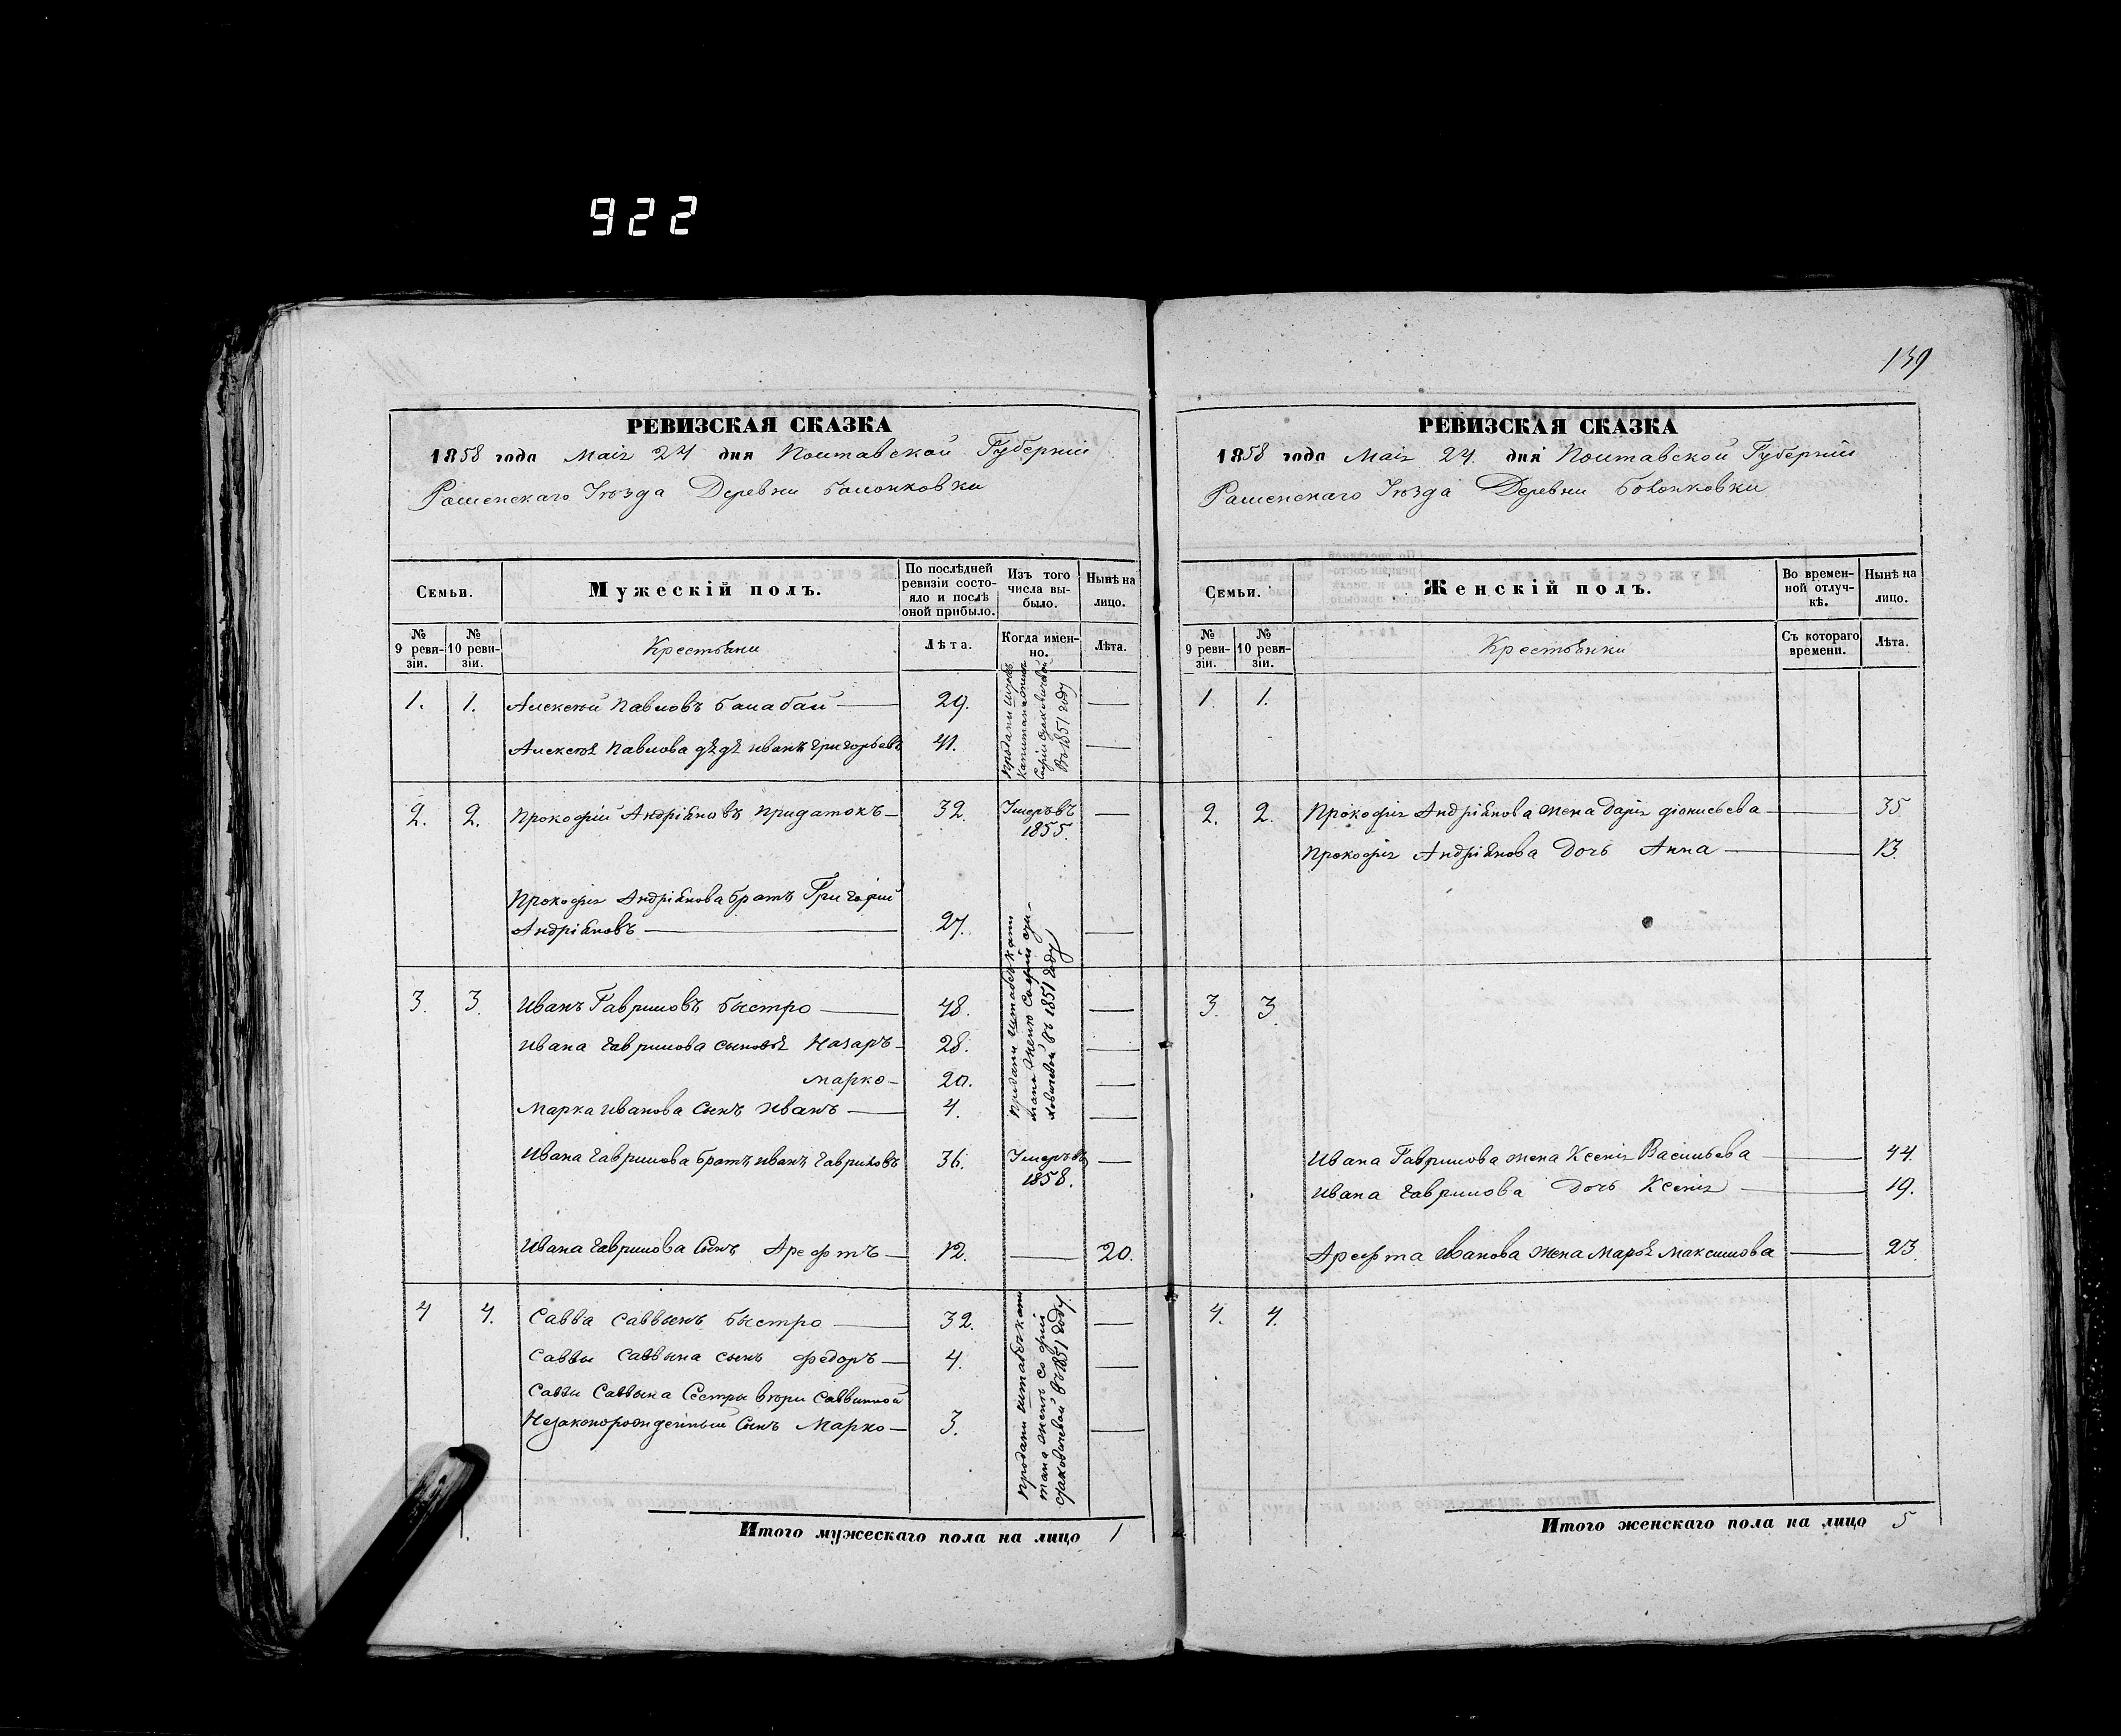 922
139
РЕВИЗСКАЯ СКАЗКА
1858 года Маія 24 дня Полтавской Губерніи
Роменскаго Уѣзда Деревни Болонковки
Семьи.
Мужескій полъ.
По послѣдней ревизіи состояло и послѣ оной прибыло.
Изъ того числа выбыло.
Нынѣ на лицо.
№ 9 ревизіи.
№ 10 ревизіи.
Крестьяни
Лѣта.
Когда именно.
Лѣта.
1. 1. Алексѣй Павловъ Балабай — 29. —
Алексѣя Павлова дядя иванъ Григорьевъ 41. —
проданы въ 1851 году
2. 2. Прокофій Андріяновъ Придатокъ — 32. Умеръ въ —
1855.
Прокофія Андріянова братъ Григорій
Андріяновъ — 27. —
3. 3. Иванъ Гавриловъ Быстро — 48. —
Ивана Гаврилова сыновья Назаръ — 28. —
Марко — 20. —
Марка Иванова сынъ Иванъ — 4. —
проданы штабскапи
тана женѣ Софіи
въ 1851 году
Ивана Гаврилова братъ иванъ Гавриловъ 36. Умеръ въ —
1858.
Ивана Гаврилова сынъ Арефтъ — 12. — 20.
4 4. Савва Саввинъ Быстро — 32. —
Саввы Саввина сынъ Федоръ — 4. —
Саввы Саввина Сестры Саввиной
Незаконорожденный сынъ Марко — 3. —
проданы штабскапи
тана женѣ Софіи
въ 1851 году
Итого мужескаго пола на лицо 1
РЕВИЗСКАЯ СКАЗКА
1858 года Маія 24. дня Полтавской Губерніи
Роменскаго Уѣзда Деревни Болонковки
Семьи.
Женскій полъ.
Во временной отлучкѣ.
Нынѣ на лицо.
№ 9 ревизіи.
№ 10 ревизіи.
Крестьянки
Съ котораго времени.
Лѣта.
1. 1.
2. 2. Прокофія Андріянова жена Дарія діонисьева — 35.
Прокофія Андріянова Дочь Анна — 13.
3. 3.
Ивана Гаврилова жена Ксенія Васильева — 44.
Ивана Гаврилова Дочь Ксенія — 19.
Арефта Иванова жена Марья Максимова — 23.
4. 4.
Итого женскаго пола на лицо 5